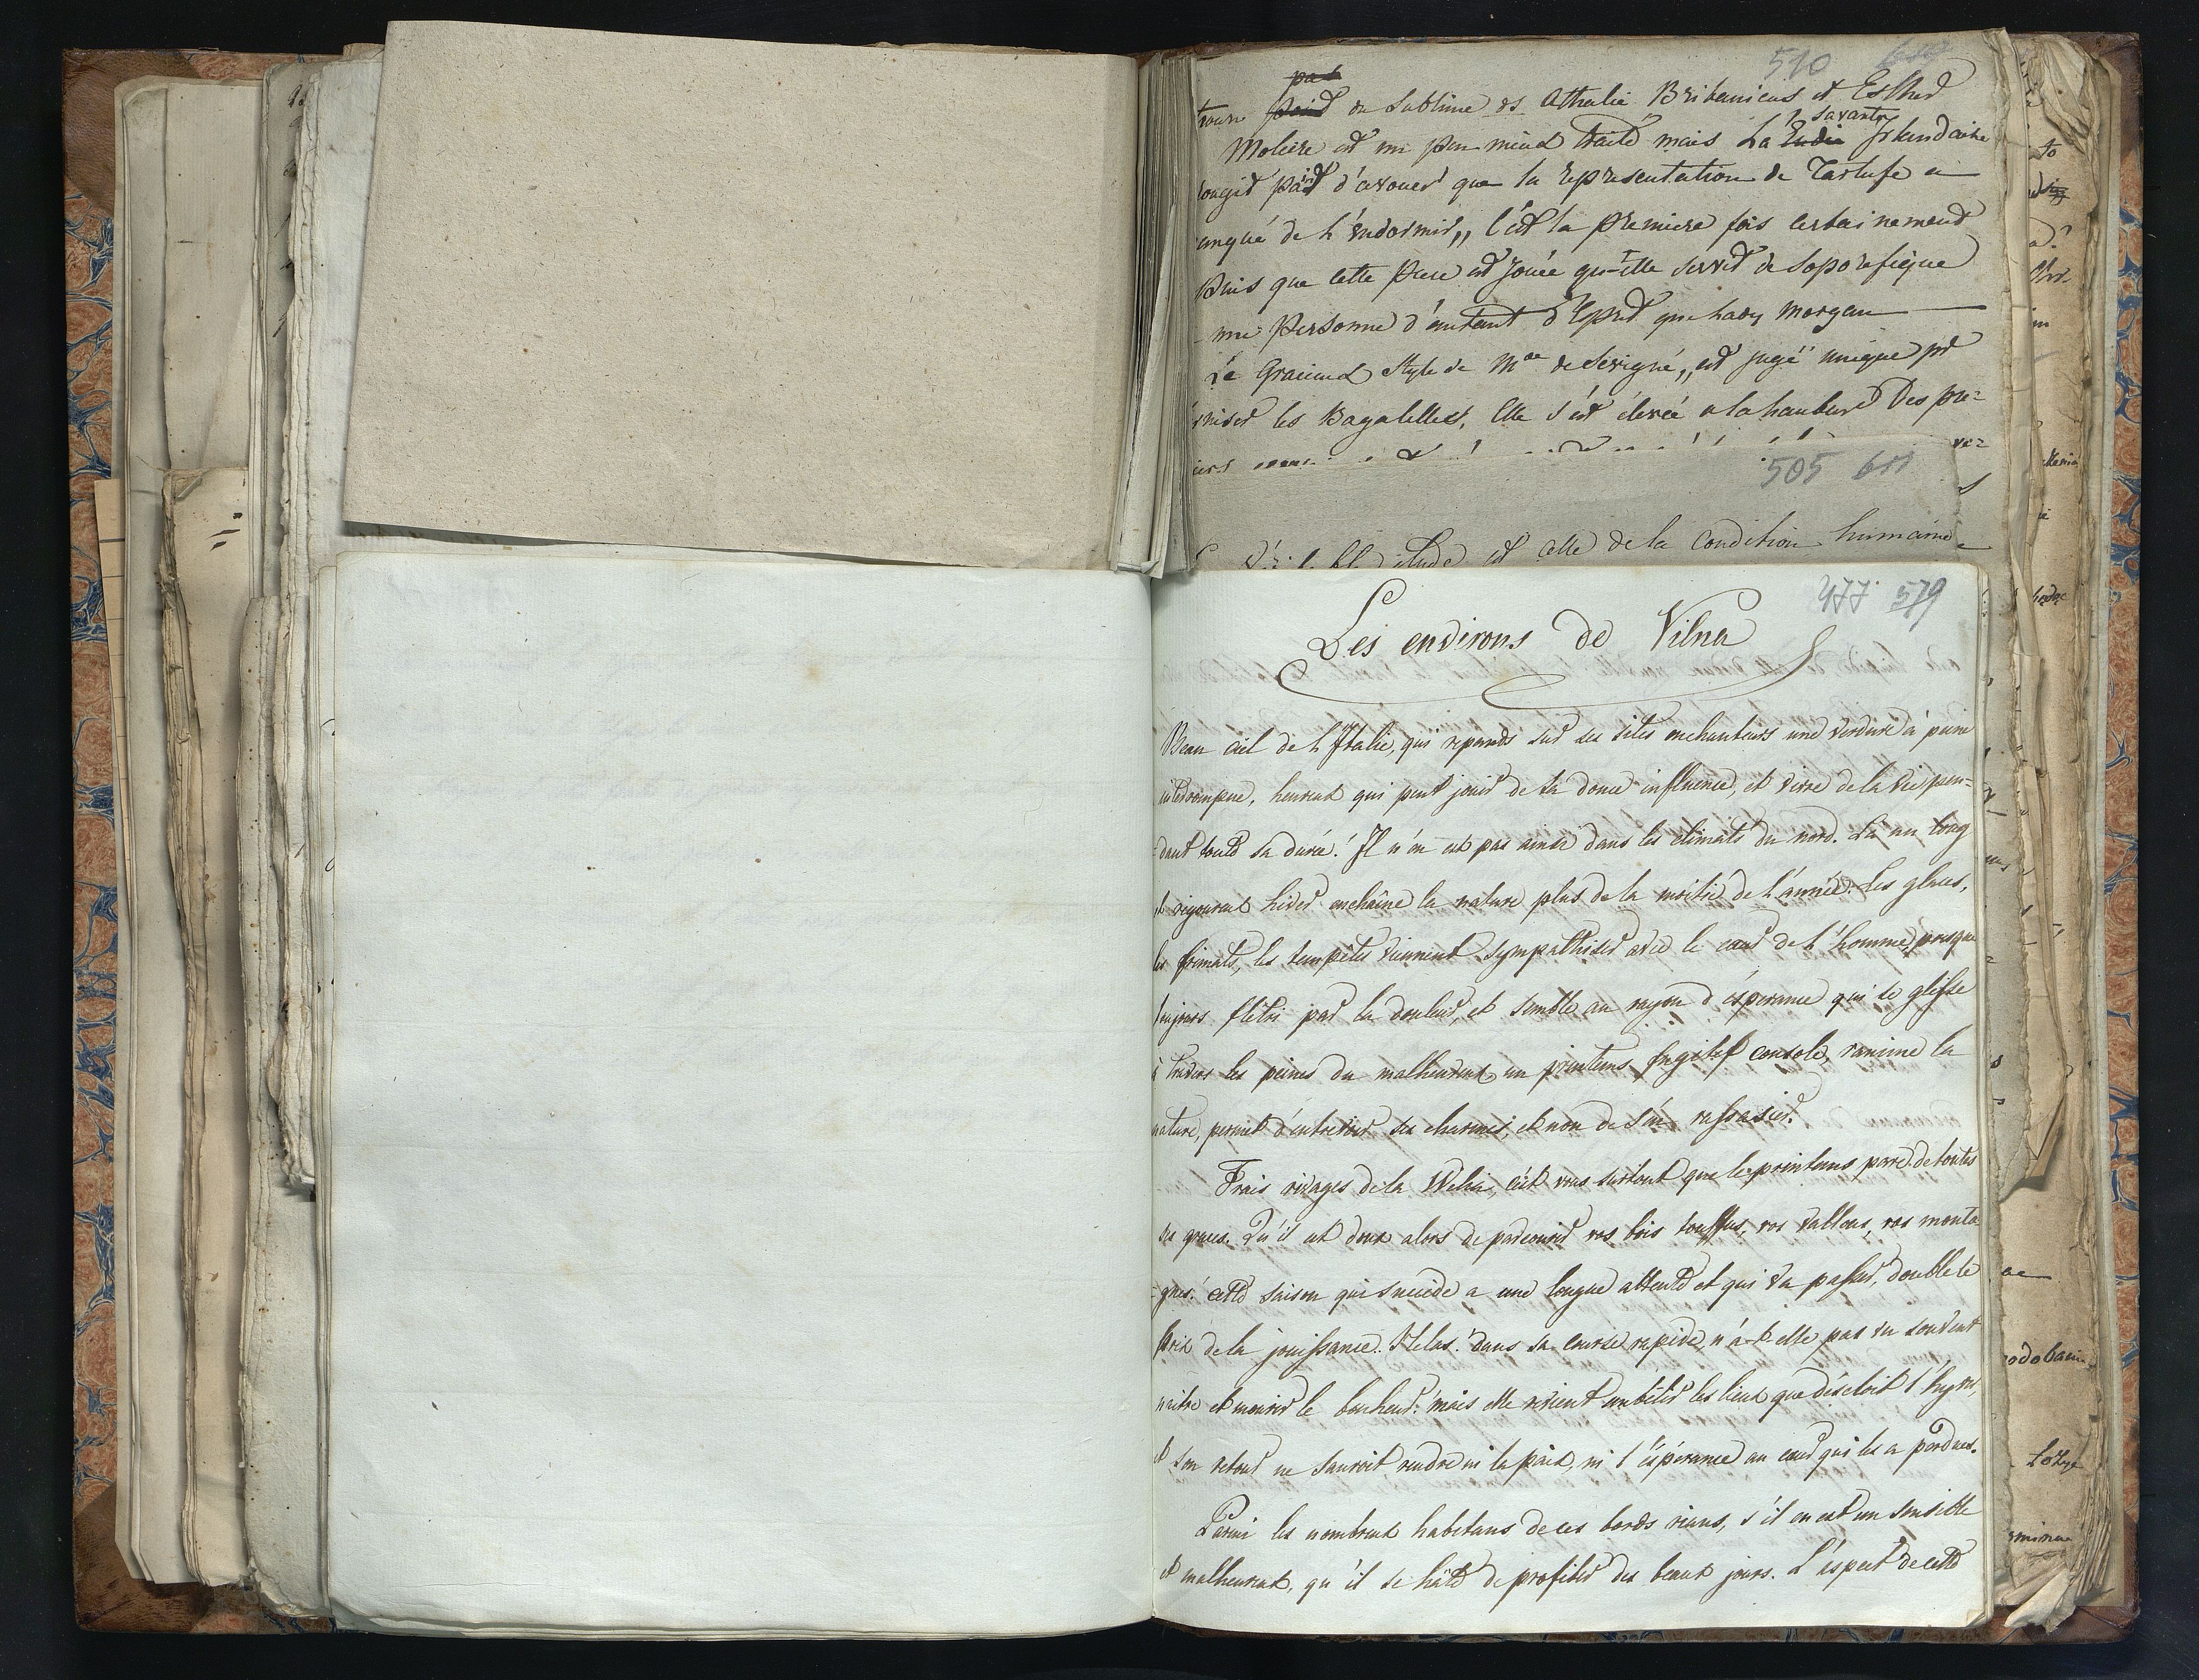 510
pas
trouve point du sublime ds Athalie Britanicus et Esther
Moliere est un peu mieux traité mais La Ladi savante Irlandaise
rougit point d'avouer que la representation de Tartufe a
anqué de l'endormir,, c'est la premiere fois certainement
Puis que cette Piece est jouée qu-elle servit de soporefique
une Personne d'autant d'Esprit que Lady Morgan
Le Gracieux style de Mde de Sévigné,, est jugé unique pr
les Bagatelles, Elle s'est élevée a la hauteur Des pre-
505 611
étude est celle de la Condition humaine
477 579
Les environs de Vilna
Beau ciel de l'Italie, qui repands sur ses sites enchanteurs une verdure à peine
interrompue, heureux qui peut jouir de ta douce influence, et vivre de la vie pen-
-dant toute sa durée! Il n'en est pas ainsi dans les climats du nord. Là un long
et rigoureux hiver enchaîne la nature plus de la moitié de l'année. Les glaces,
les frimats, les tempêtes viennent sympathiser avec le coeur de l'homme, presque
toujours flétri par la douleur, et semble au rayon d'ésperance qui se glisse
à travers les peines du malheureux un printems fugitif console, ranime la
nature, permet d'entrevoir ses charmes, et non de s'en rassasier.
Frais rivages de la Welia, c'est vous surtout que le printems pare de toutes
ses graces. Qu'il est doux alors de parcourir vos bois touffus, vos vallons, vos monta
-gnes! cette saison qui succède a une longue attente et qui va passer, double le
prix de la jouissance. Hélas! dans sa course rapide, n'a-t-elle pas vu souvent
naitre et mourir le bonheur! mais elle revient embélir les lieux que désoloit l'hyver,
et son retour ne sauroit rendre ni la paix, ni l'ésperance au coeur qui les a perdues.
Parmi les nombreux habitans de ces bords rians, s'il en est un sensible
et malheureux, qu'il se hâte de profiter des beaux jours. L'aspect de cette